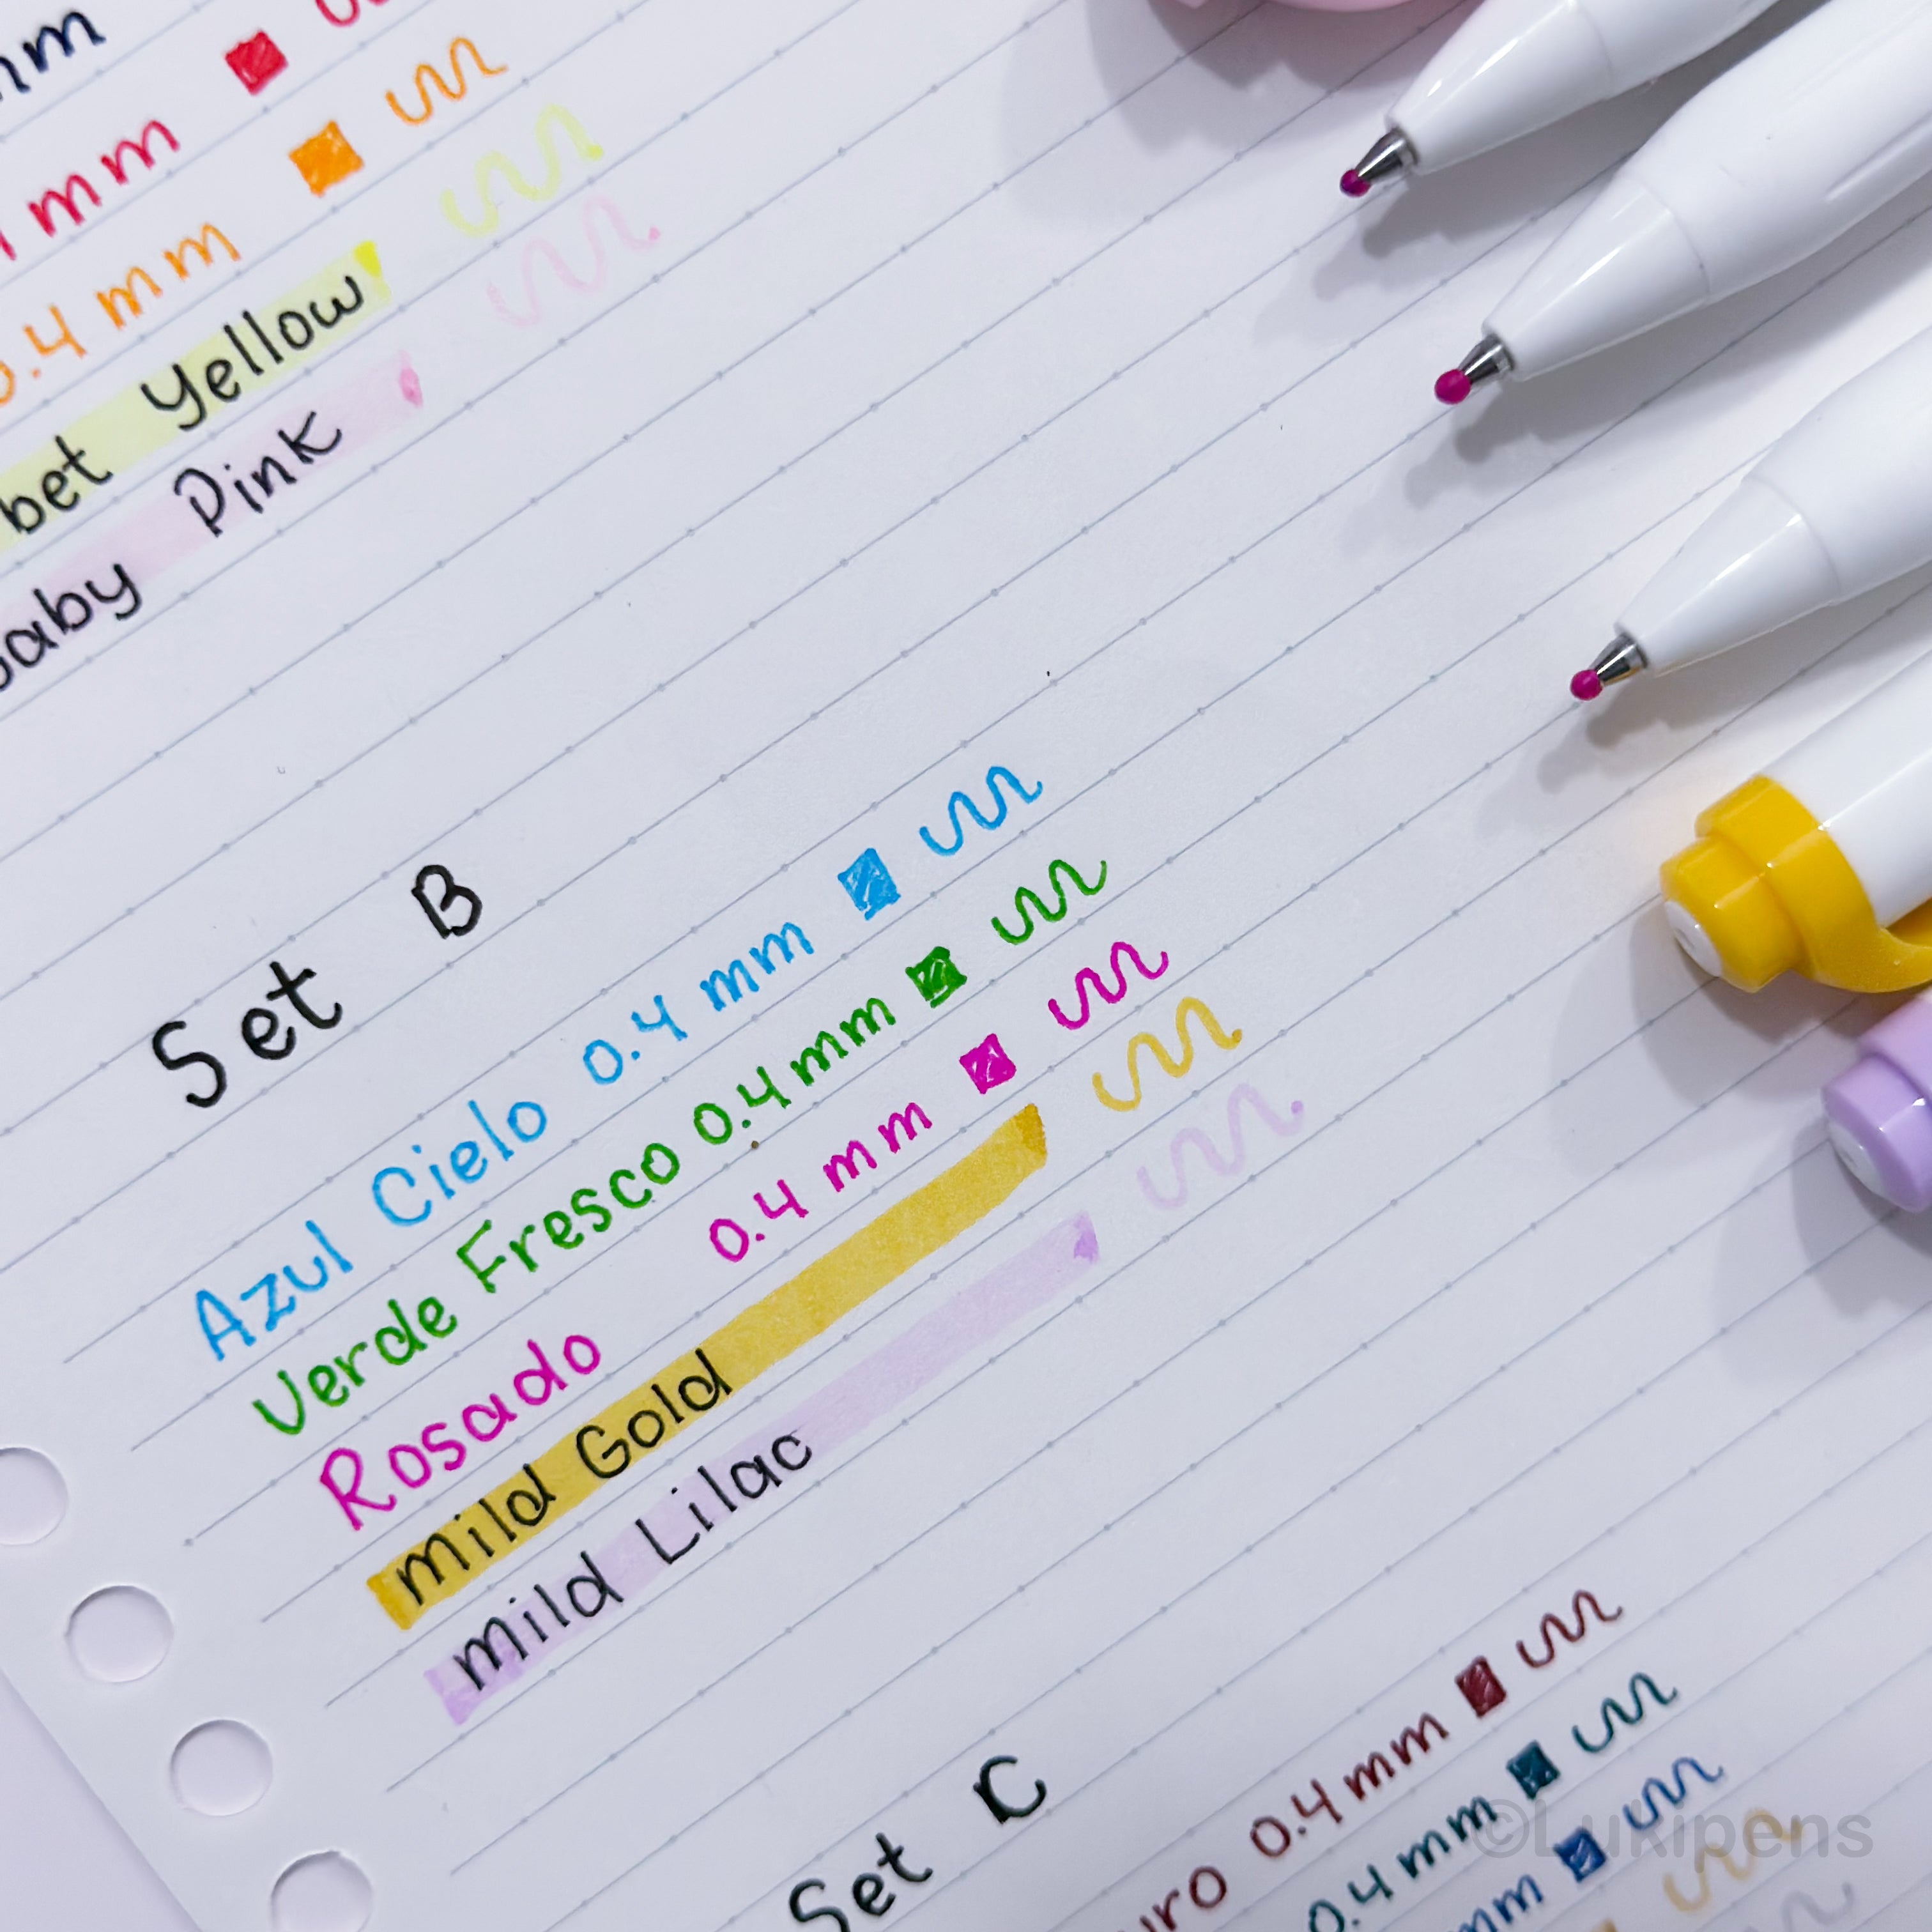 mm
mm
0.4 mm
Yellow
Pink
Set B
Azul Cielo 0.4 mm
Verde Fresco 0.4 mm
Rosado 0.4 mm
mild Gold
mild Lilac
Set C
0.4 mm
0.4 mm
mm
©Lukipens